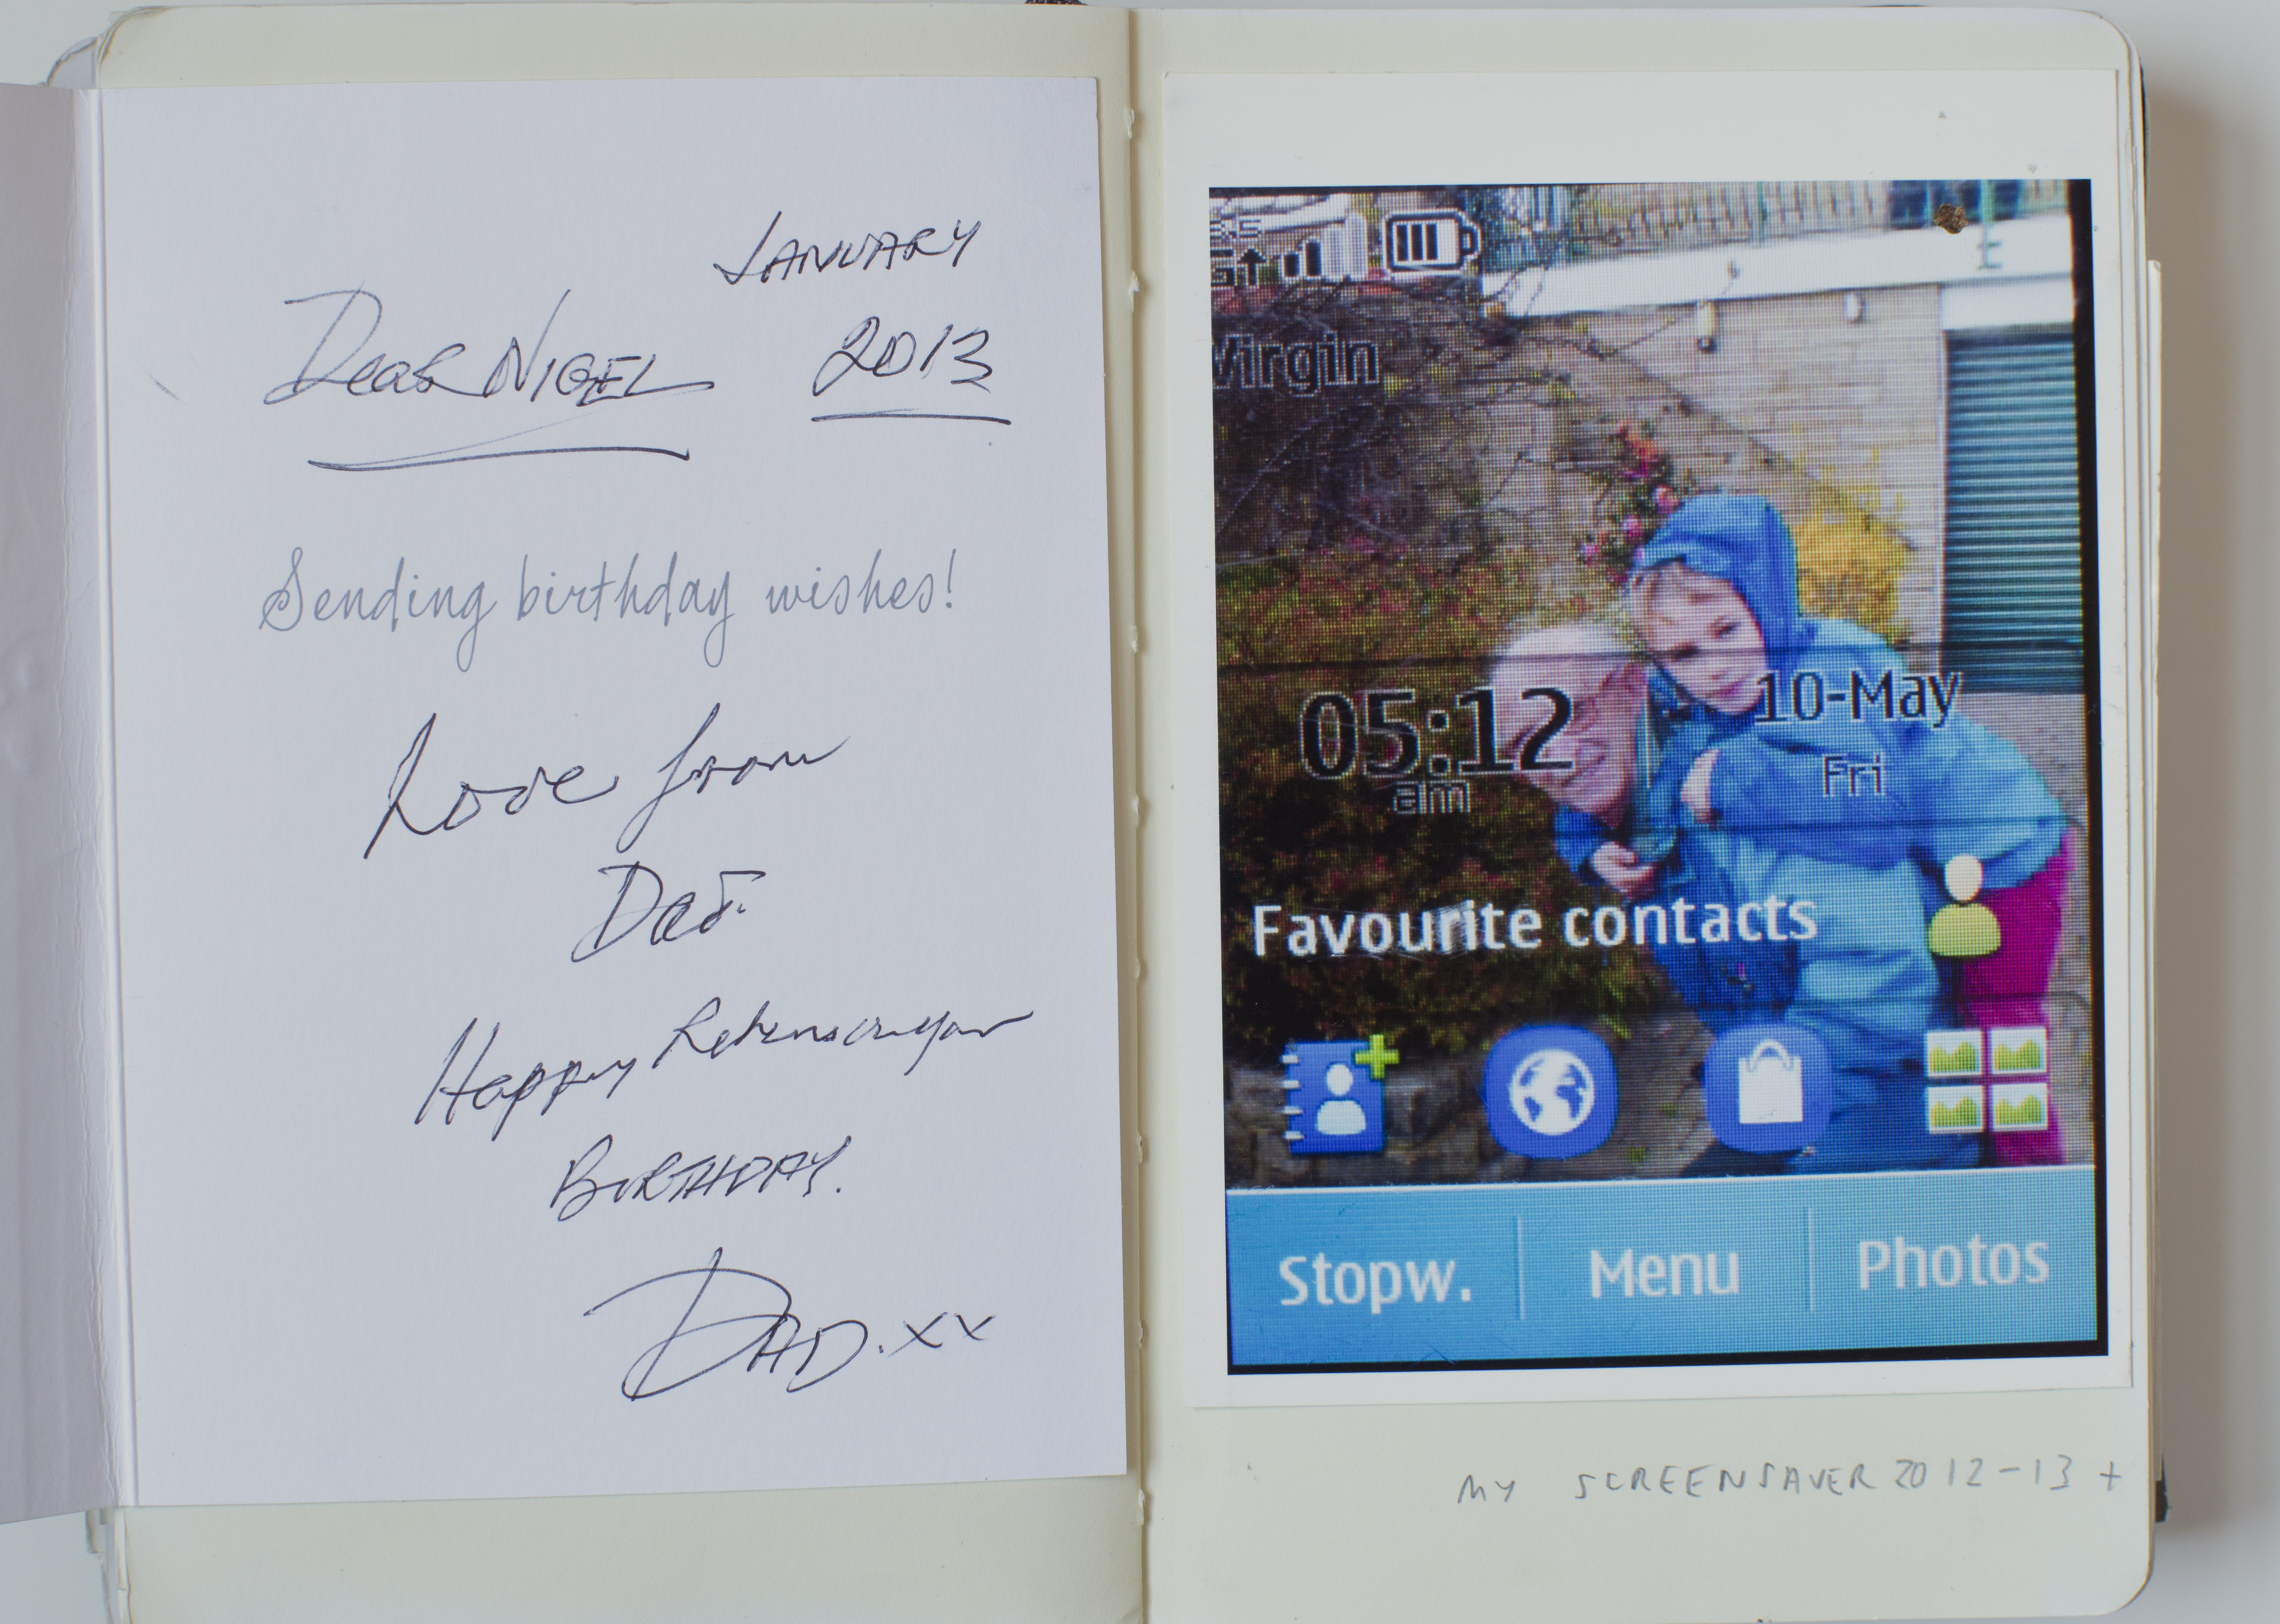 JANUARY
Dear NIGEL 2013
Sending birthday wishes!
Love from
Dad.
Happy
BIRTHDAY.
DAD. xx
Virgin
05:12
am
10-May
Fri
Favourite contacts
Stopw. Menu Photos
MY SCREENSAVER 2012-13 +